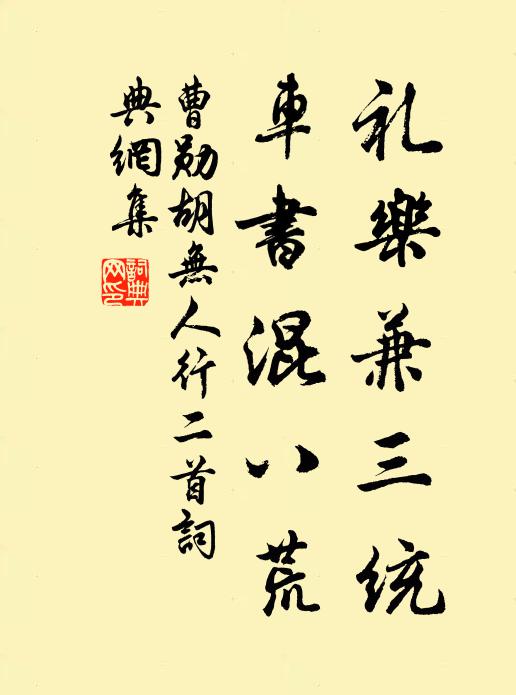 礼樂兼三統
車書混八荒
曹勛胡無人行二首詞
典網集
詞典網印